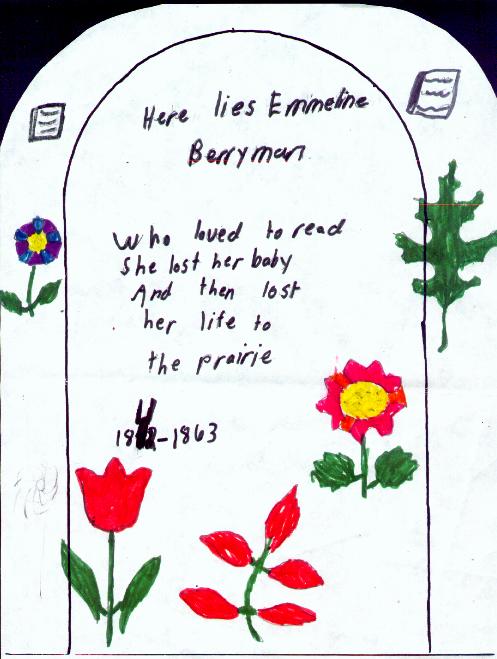 Here lies Emmeline
Berryman
Who loved to read
She lost her baby
And then lost
her life to
the prairie
-1863